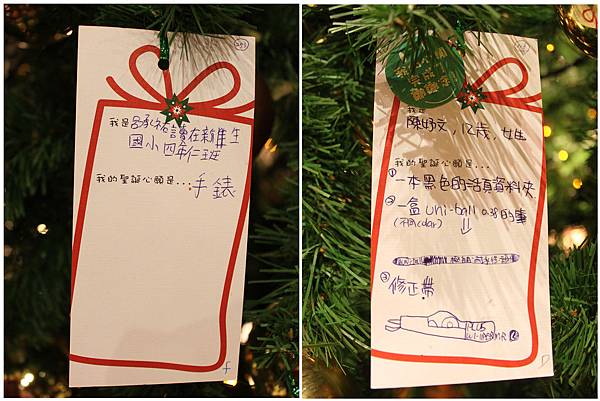 我是呂承祐讀在新民生
國小四年仁班
我的聖誕心願是...手錶
F
我是
陳妤文,12歲,女生
我的聖誕心願是...
①一本黑色的活頁資料夾
②一盒 uni-ball 0.38的筆
(不同color)
③修正帶
PLUS
D